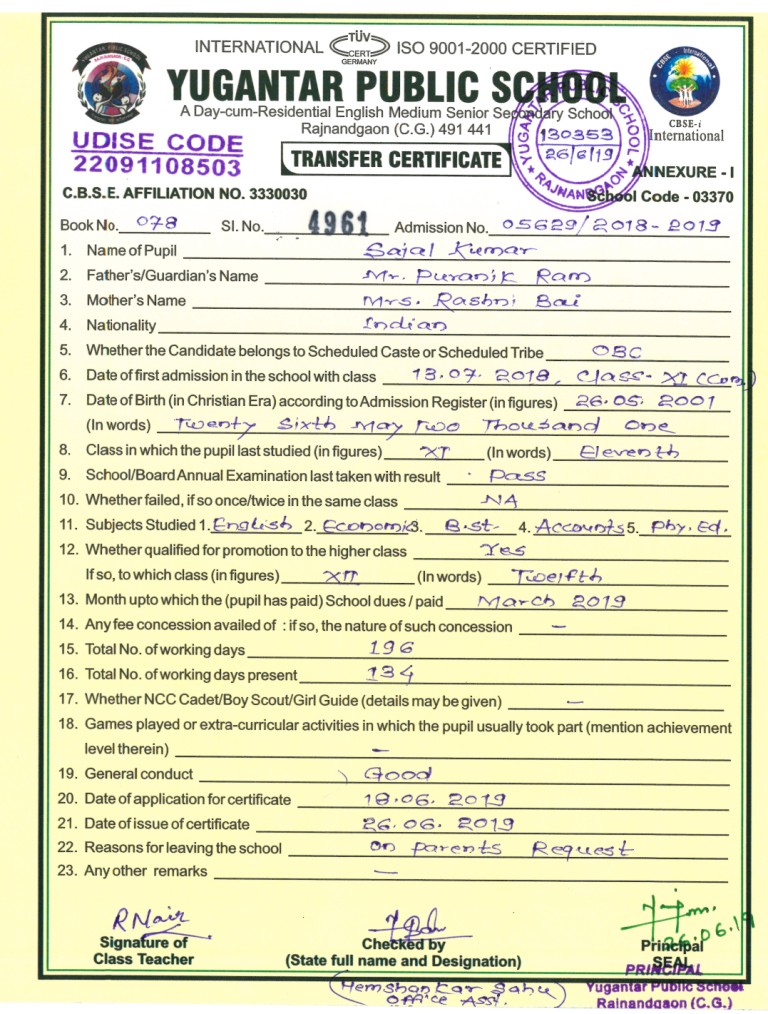 INTERNATIONAL TÜV CERT GERMANY ISO 9001-2000 CERTIFIED
YUGANTAR PUBLIC SCHOOL
A Day-cum-Residential English Medium Senior Secondary School
Rajnandgaon (C.G.) 491 441
CBSE-i
International
UDISE CODE
22091108503
TRANSFER CERTIFICATE
YUGANTAR PUBLIC SCHOOL
130353
26/6/19
RAJNANDGAON
ANNEXURE - I
C.B.S.E. AFFILIATION NO. 3330030 School Code - 03370
Book No. 078 Sl. No. 4961 Admission No. 05629/2018-2019
1. Name of Pupil Sajal Kumar
2. Father's/Guardian's Name Mr. Puranik Ram
3. Mother's Name Mrs. Rashni Bai
4. Nationality Indian
5. Whether the Candidate belongs to Scheduled Caste or Scheduled Tribe OBC
6. Date of first admission in the school with class 13.07.2018, Class-XI (Com.)
7. Date of Birth (in Christian Era) according to Admission Register (in figures) 26.05.2001
(In words) Twenty Sixth May Two Thousand One
8. Class in which the pupil last studied (in figures) XI (In words) Eleventh
9. School/Board Annual Examination last taken with result Pass
10. Whether failed, if so once/twice in the same class NA
11. Subjects Studied 1. English 2. Economics 3. B.st. 4. Accounts 5. Phy. Ed.
12. Whether qualified for promotion to the higher class Yes
If so, to which class (in figures) XII (In words) Twelfth
13. Month upto which the (pupil has paid) School dues / paid March 2019
14. Any fee concession availed of : if so, the nature of such concession –
15. Total No. of working days 196
16. Total No. of working days present 134
17. Whether NCC Cadet/Boy Scout/Girl Guide (details may be given) –
18. Games played or extra-curricular activities in which the pupil usually took part (mention achievement
level therein) –
19. General conduct Good
20. Date of application for certificate 18.06.2019
21. Date of issue of certificate 26.06.2019
22. Reasons for leaving the school On Parents Request
23. Any other remarks –
R Nair
26.06.19
Signature of Checked by Principal
Class Teacher (State full name and Designation) SEAL
PRINCIPAL
(Hemshankar Sahu) Yugantar Public School
Office Asst. Rajnandgaon (C.G.)